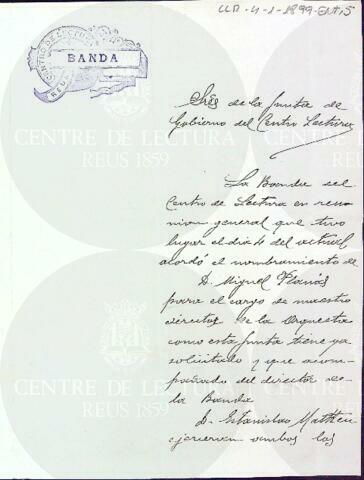 CLR-4-1-1899-Ent.5
CENTRO DE LECTURA
BANDA
REUS
Sres de la Junta de
Gobierno del Centro Lectura
CENTRE DE LECTURA
REUS 1859
La Banda del
Centro de Lectura en reu-
nion general que tuvo
lugar el dia 4 del actual
acordó el nombramiento de
D. Miguel Planás
para el cargo de maestro
director de la Orquesta
como esta Junta tiene ya
solicitado y que acom-
pañado del director de
la Banda
CENTRE DE LECTURA
REUS 1859
D. Estanislao Matheu
ejerceran ambos los